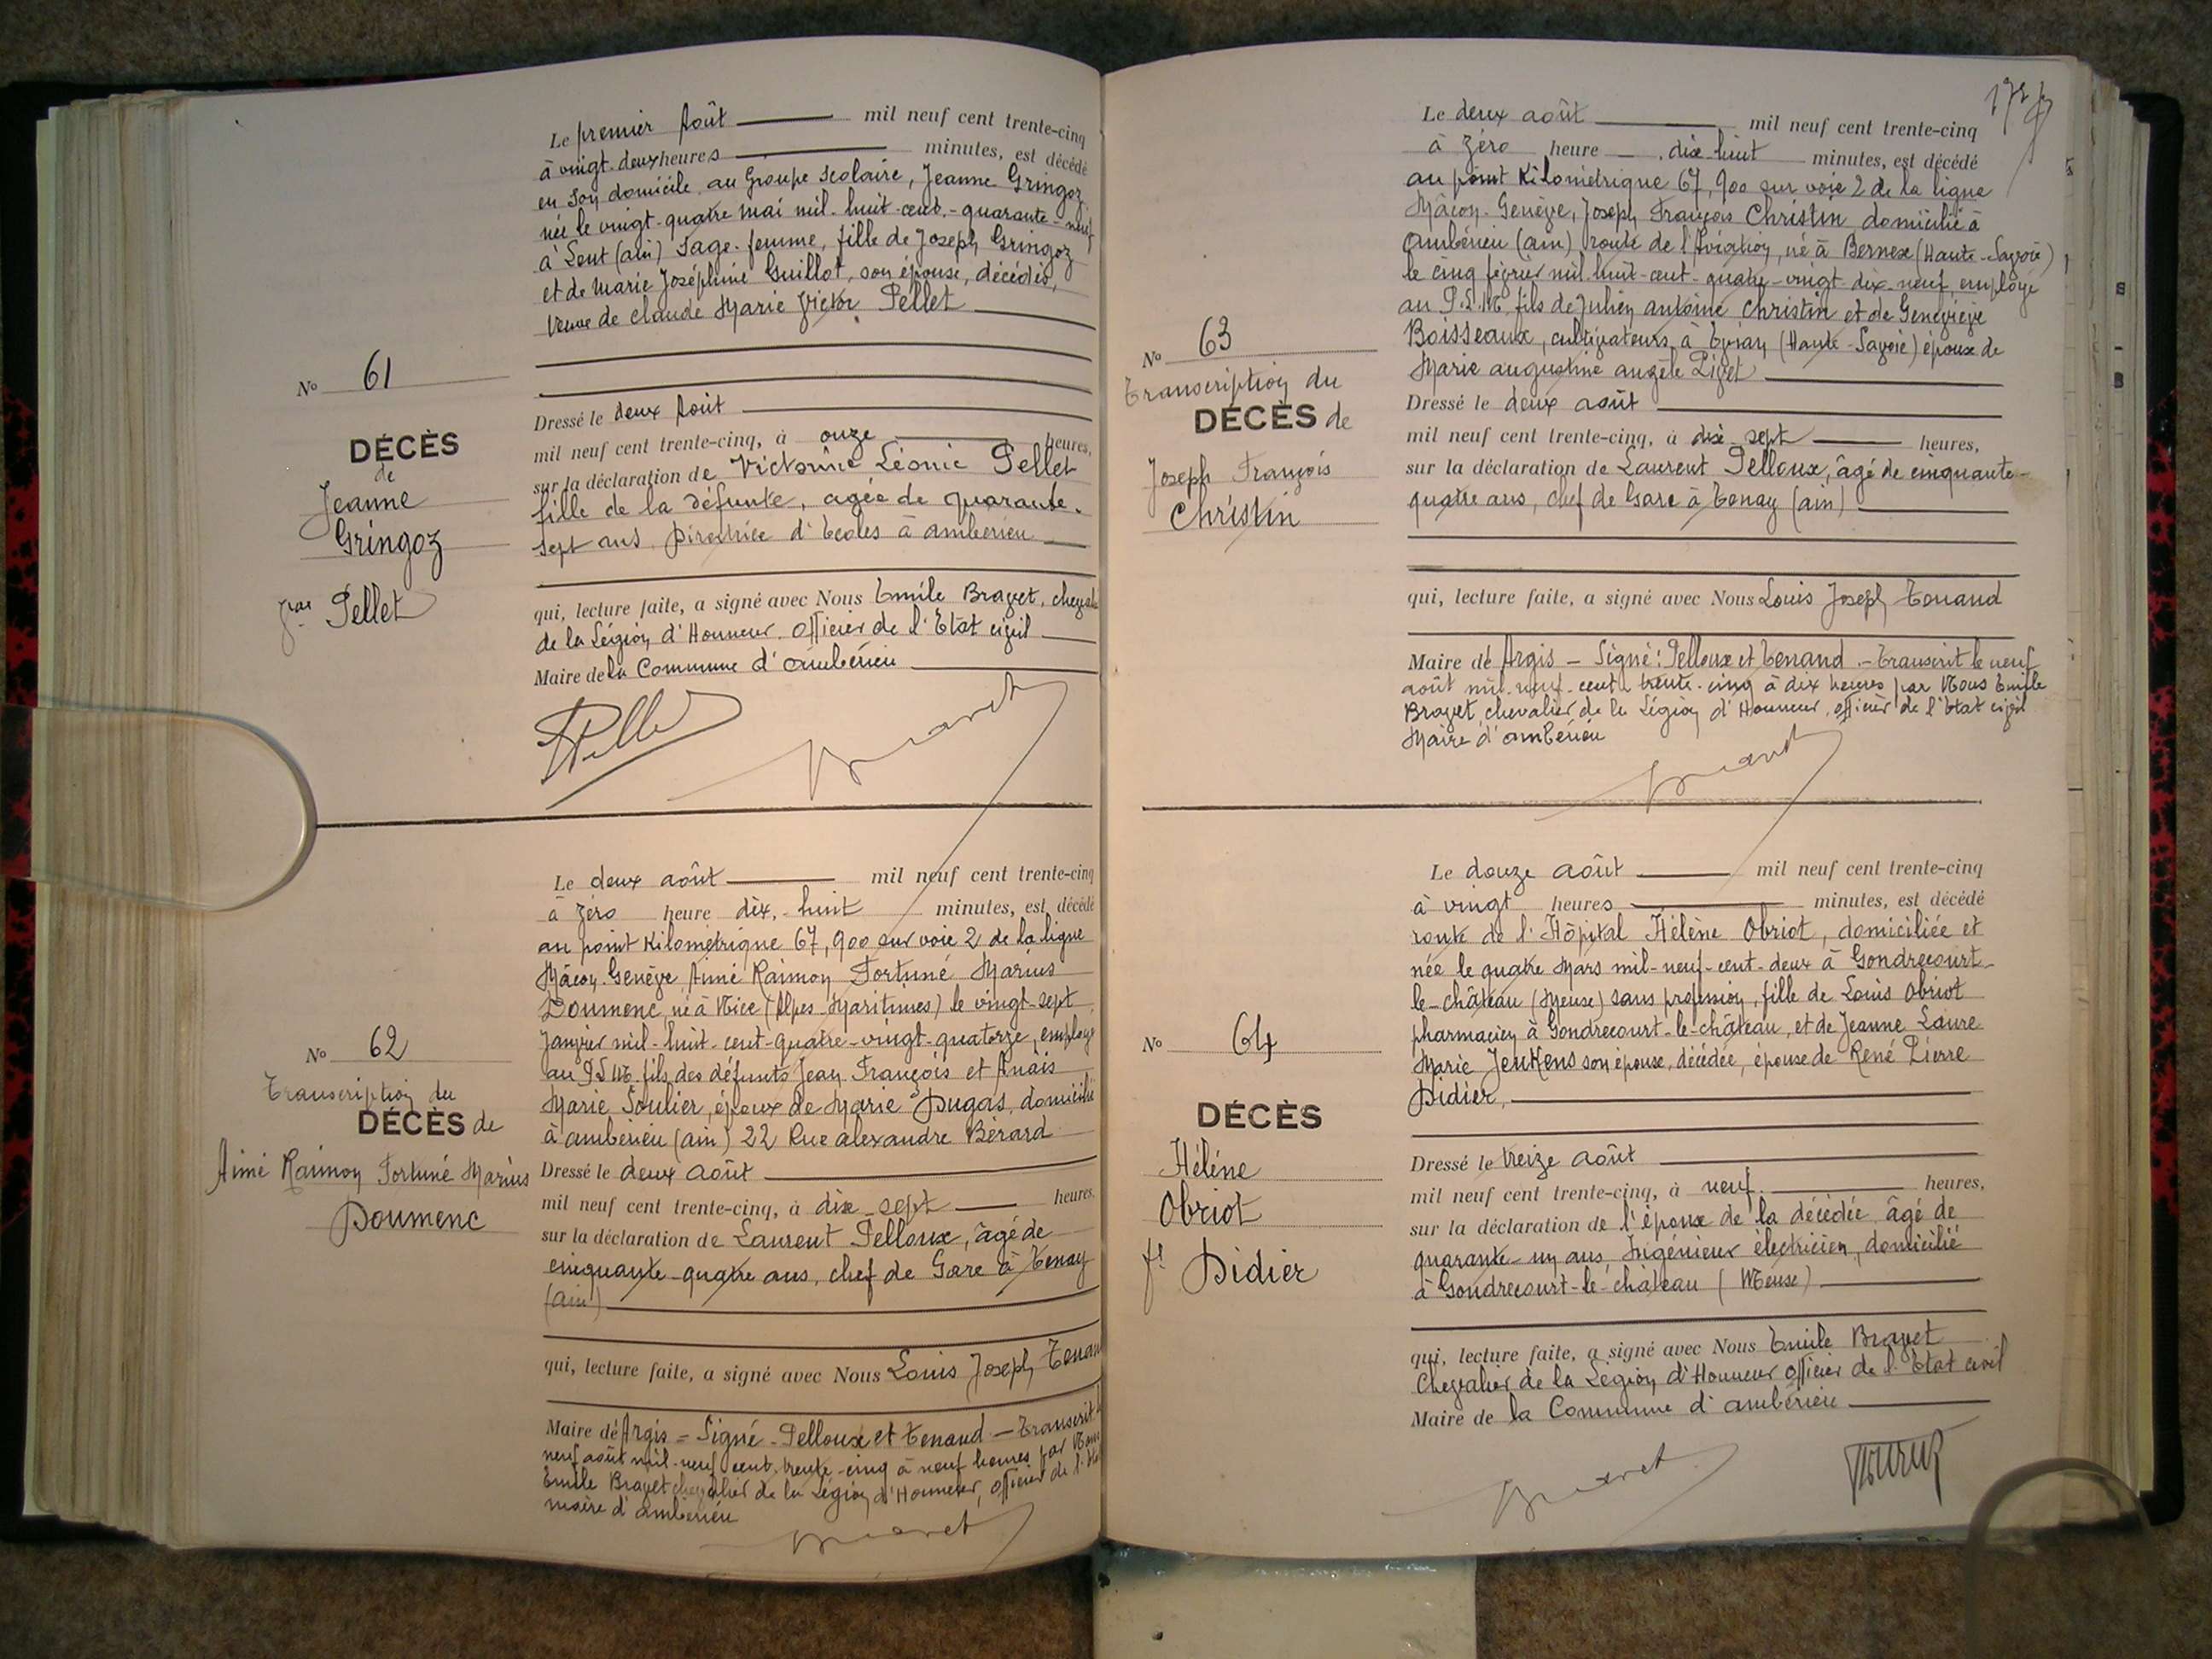 Le premier Août ——— mil neuf cent trente-cinq
à vingt-deux heures ——— minutes, est décédé
en son domicile au Groupe scolaire, Jeanne Gringoz
née le vingt-quatre mai mil-huit-cent-quarante-neuf
à Lent (ain) sage-femme, fille de Joseph Gringoz
et de Marie Joséphine Guillot, son épouse, décédés,
veuve de claude Marie Victor Pellet
No 61
DÉCÈS
de
Jeanne
Gringoz
Vve Pellet
Dressé le deux Août
mil neuf cent trente-cinq, à onze heures,
sur la déclaration de Victorine Léonie Pellet
fille de la défunte, agée de quarante-
sept ans, Directrice d'Ecoles à ambérieu
qui, lecture faite, a signé avec Nous Emile Bravet, cheval
de la Légion d'Honneur. Officier de l'Etat civil
Maire de la Commune d'ambérieu
Pellet
Bravet
Le deux août ——— mil neuf cent trente-cinq
à zéro heure dix-huit minutes, est décédé
au point Kilométrique 67,900 sur voie 2 de la ligne
Mâcon-Genève, Aimé Raimon Fortuné Marius
Doumenc, né à Nice (Alpes-Maritimes) le vingt-sept
Janvier mil-huit-cent-quatre-vingt-quatorze, employé
au P.L.M. fils des défunts Jean François et Anaïs
Marie Soulier, époux de Marie Dugas, domicilié
à ambérieu (ain) 22 Rue alexandre Bérard
No 62
Transcription du
DÉCÈS de
Aimé Raimon Fortuné Marius
Doumenc
Dressé le deux août
mil neuf cent trente-cinq, à dix-sept heures,
sur la déclaration de Laurent Pelloux, âgé de
cinquante-quatre ans, chef de Gare à Tenay
(ain)
qui, lecture faite, a signé avec Nous Louis Joseph Tenan
Maire de Argis = Signé - Pelloux et Tenand - Transcrit l
neuf août mil-neuf-cent-trente-cinq à neuf heures par Nous
Emile Bravet chevalier de la Légion d'Honneur, officier de l'Etat
maire d'ambérieu
Bravet
172
Le deux août ——— mil neuf cent trente-cinq
à zéro heure — dix-huit minutes, est décédé
au point Kilométrique 67,900 sur voie 2 de la ligne
Mâcon-Genève, Joseph François Christin domicilié à
Ambérieu (ain) route de l'Aviation, né à Bernex (Haute-Savoie)
le cinq février mil-huit-cent-quatre-vingt-dix-neuf, employé
au P.L.M, fils de Julien antoine Christin et de Geneviève
Boisseaux, cultivateurs, à Evian (Haute-Savoie) époux de
Marie augustine angèle Livet
No 63
Transcription du
DÉCÈS de
Joseph François
Christin
Dressé le deux août
mil neuf cent trente-cinq, à dix-sept heures,
sur la déclaration de Laurent Pelloux, âgé de cinquante-
quatre ans, chef de Gare à Tenay (ain)
qui, lecture faite, a signé avec Nous Louis Joseph Tenand
Maire de Argis — Signé: Pelloux et Tenand - Transcrit le neuf
août mil-neuf-cent-trente-cinq à dix heures par Nous Emile
Bravet, chevalier de la Légion d'Honneur, officier de l'Etat civil
Maire d'ambérieu
Bravet
Le douze août ——— mil neuf cent trente-cinq
à vingt heures ——— minutes, est décédé
route de l'Hôpital Hélène Obriot, domiciliée et
née le quatre Mars mil-neuf-cent-deux à Gondrecourt-
le-château (Meuse) sans profession, fille de Louis Obriot
pharmacien à Gondrecourt-le-château, et de Jeanne Laure
Marie Jenkens son épouse, décédée, épouse de René Pierre
Didier,
No 64
DÉCÈS
Hélène
Obriot
fe Didier
Dressé le treize août
mil neuf cent trente-cinq, à neuf heures,
sur la déclaration de l'époux de la décédée âgé de
quarante-un ans, Ingénieur électricien, domicilié
à Gondrecourt-le-château (Meuse)
qui, lecture faite, a signé avec Nous Emile Bravet
Chevalier de la Légion d'Honneur officier de l'Etat civil
Maire de la Commune d'ambérieu
Bravet